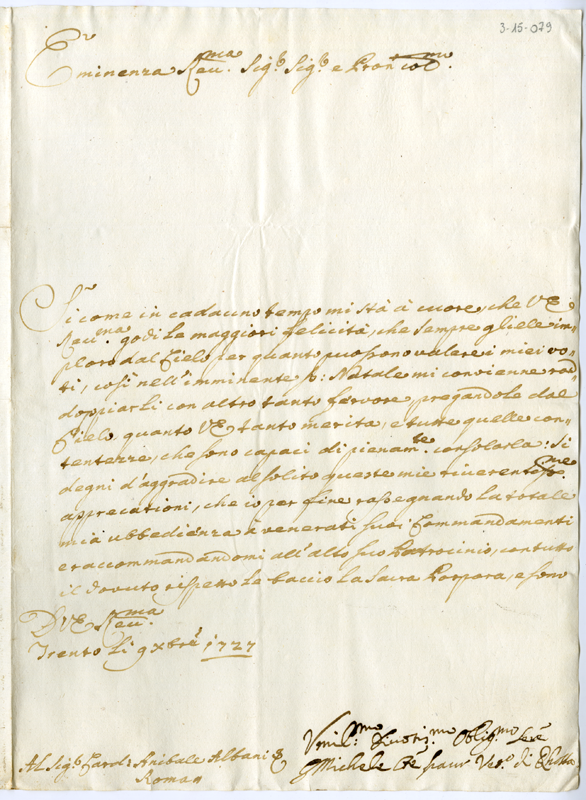 3-15-079
Eminenza Reu.ma Sig.r Sig.r e Pron Col.mo
Si come in cadauno tempo mi stà à cuore, che V E
Reu.ma godi le maggiori felicità, che sempre gliele im-
ploro dal Cielo per quanto puossono valere i miei vo-
ti, così nell'imminente S: Natale mi convienne rad-
doppiarli con altro tanto fervore, pregandole dal
Cielo, quanto V E tanto merita, e tutte quelle con-
tentezze, che sono capaci di pienam.te consolarla: Si
degni d'aggradire al solito queste mie riverentiss.me
apprecationi, che io per fine rassegnando la totale
mia ubbedienza à venerati suoi Commandamenti
e raccommandomi all'alto suo Patrocinio, con tutto
il dovuto rispetto le baccio la Sacra Porpora, e sono
D V E Reu.ma
Trento li 9 xbre 1727
Umil.mo Deuotis.mo Oblig.mo Ser.e
Al Sig.r Card.e Anibale Albani
Roma
Michele